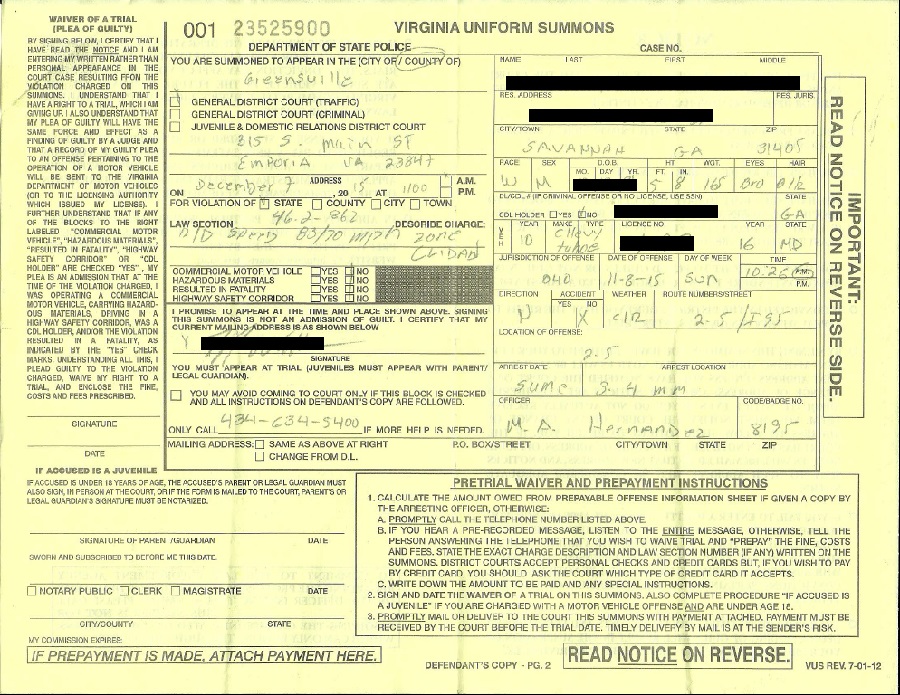 WAIVER OF A TRIAL
(PLEA OF GUILTY)
BY SIGNING BELOW, I CERTIFY THAT I
HAVE READ THE NOTICE AND I AM
ENTERING MY WRITTEN RATHER THAN
PERSONAL APPEARANCE IN THE
COURT CASE RESULTING FROM THE
VIOLATION CHARGED ON THIS
SUMMONS. I UNDERSTAND THAT I
HAVE A RIGHT TO A TRIAL, WHICH I AM
GIVING UP. I ALSO UNDERSTAND THAT
MY PLEA OF GUILTY WILL HAVE THE
SAME FORCE AND EFFECT AS A
FINDING OF GUILTY BY A JUDGE AND
THAT A RECORD OF MY GUILTY PLEA
TO AN OFFENSE PERTAINING TO THE
OPERATION OF A MOTOR VEHICLE
WILL BE SENT TO THE VIRGINIA
DEPARTMENT OF MOTOR VEHICLES
(OR TO THE LICENSING AUTHORITY
WHICH ISSUED MY LICENSE). I
FURTHER UNDERSTAND THAT IF ANY
OF THE BLOCKS TO THE RIGHT
LABELED "COMMERCIAL MOTOR
VEHICLE", "HAZARDOUS MATERIALS",
"RESULTED IN FATALITY", "HIGHWAY
SAFETY CORRIDOR" OR "CDL
HOLDER" ARE CHECKED "YES", MY
PLEA IS AN ADMISSION THAT AT THE
TIME OF THE VIOLATION CHARGED, I
WAS OPERATING A COMMERCIAL
MOTOR VEHICLE, CARRYING HAZARD-
OUS MATERIALS, DRIVING IN A
HIGHWAY SAFETY CORRIDOR, WAS A
CDL HOLDER, AND/OR THE VIOLATION
RESULTED IN A FATALITY, AS
INDICATED BY THE "YES" CHECK
MARKS. UNDERSTANDING ALL THIS, I
PLEAD GUILTY TO THE VIOLATION
CHARGED, WAIVE MY RIGHT TO A
TRIAL, AND ENCLOSE THE FINE,
COSTS AND FEES PRESCRIBED.
SIGNATURE
DATE
IF ACCUSED IS A JUVENILE
IF ACCUSED IS UNDER 18 YEARS OF AGE, THE ACCUSED'S PARENT OR LEGAL GUARDIAN MUST
ALSO SIGN, IN PERSON AT THE COURT, OR IF THE FORM IS MAILED TO THE COURT, PARENT'S OR
LEGAL GUARDIAN'S SIGNATURE MUST BE NOTARIZED.
SIGNATURE OF PARENT/GUARDIAN DATE
SWORN AND SUBSCRIBED TO BEFORE ME THIS DATE.
NOTARY PUBLIC CLERK MAGISTRATE DATE
CITY/COUNTY STATE
MY COMMISSION EXPIRES:
IF PREPAYMENT IS MADE, ATTACH PAYMENT HERE.
001 23525900 VIRGINIA UNIFORM SUMMONS
DEPARTMENT OF STATE POLICE
CASE NO.
YOU ARE SUMMONED TO APPEAR IN THE (CITY OF / COUNTY OF)
Greensville
GENERAL DISTRICT COURT (TRAFFIC)
GENERAL DISTRICT COURT (CRIMINAL)
JUVENILE & DOMESTIC RELATIONS DISTRICT COURT
315 S. Main ST
Emporia VA 23847
ADDRESS
ON December 7, 20 15 AT 1100 A.M.
P.M.
FOR VIOLATION OF STATE COUNTY CITY TOWN
46.2-862
LAW SECTION DESCRIBE CHARGE:
R/D Speed 83/70 mph zone
COMMERCIAL MOTOR VEHICLE YES NO
HAZARDOUS MATERIALS YES NO
RESULTED IN FATALITY YES NO
HIGHWAY SAFETY CORRIDOR YES NO
I PROMISE TO APPEAR AT THE TIME AND PLACE SHOWN ABOVE. SIGNING
THIS SUMMONS IS NOT AN ADMISSION OF GUILT. I CERTIFY THAT MY
CURRENT MAILING ADDRESS IS AS SHOWN BELOW
SIGNATURE
YOU MUST APPEAR AT TRIAL (JUVENILES MUST APPEAR WITH PARENT/
LEGAL GUARDIAN).
YOU MAY AVOID COMING TO COURT ONLY IF THIS BLOCK IS CHECKED
AND ALL INSTRUCTIONS ON DEFENDANT'S COPY ARE FOLLOWED.
ONLY CALL 434-634-5400 IF MORE HELP IS NEEDED.
NAME LAST FIRST MIDDLE
RES. ADDRESS RES. JURIS.
CITY/TOWN STATE ZIP
SAVANNAH GA 31405
RACE SEX D.O.B. HT WGT. EYES HAIR
MO. DAY YR. FT. IN.
W M 5 8 165 Bro Blk
CDL HOLDER YES NO GA
YEAR MAKE TYPE LICENSE NO. YEAR STATE
10 Chevy 16 MD
JURISDICTION OF OFFENSE DATE OF OFFENSE DAY OF WEEK TIME
040 11-8-15 Sun 10:26 A.M.
P.M.
DIRECTION ACCIDENT WEATHER ROUTE NUMBER/STREET
YES NO
N X CLR 2-5 / I95
LOCATION OF OFFENSE:
2.5
ARREST DATE ARREST LOCATION
Same 3.4 mm
OFFICER CODE/BADGE NO.
M. A. Hernandez 8195
MAILING ADDRESS: SAME AS ABOVE AT RIGHT P.O. BOX/STREET CITY/TOWN STATE ZIP
CHANGE FROM D.L.
IMPORTANT:
READ NOTICE ON REVERSE SIDE.
PRETRIAL WAIVER AND PREPAYMENT INSTRUCTIONS
1. CALCULATE THE AMOUNT OWED FROM PREPAYABLE OFFENSE INFORMATION SHEET IF GIVEN A COPY BY
THE ARRESTING OFFICER, OTHERWISE:
A. PROMPTLY CALL THE TELEPHONE NUMBER LISTED ABOVE.
B. IF YOU HEAR A PRE-RECORDED MESSAGE, LISTEN TO THE ENTIRE MESSAGE, OTHERWISE, TELL THE
PERSON ANSWERING THE TELEPHONE THAT YOU WISH TO WAIVE TRIAL AND "PREPAY" THE FINE, COSTS
AND FEES. STATE THE EXACT CHARGE DESCRIPTION AND LAW SECTION NUMBER (IF ANY) WRITTEN ON THE
SUMMONS. DISTRICT COURTS ACCEPT PERSONAL CHECKS AND CREDIT CARDS BUT, IF YOU WISH TO PAY
BY CREDIT CARD, YOU SHOULD ASK THE COURT WHICH TYPE OF CREDIT CARD IT ACCEPTS.
C. WRITE DOWN THE AMOUNT TO BE PAID AND ANY SPECIAL INSTRUCTIONS.
2. SIGN AND DATE THE WAIVER OF A TRIAL ON THIS SUMMONS. ALSO COMPLETE PROCEDURE "IF ACCUSED IS
A JUVENILE" IF YOU ARE CHARGED WITH A MOTOR VEHICLE OFFENSE AND ARE UNDER AGE 18.
3. PROMPTLY MAIL OR DELIVER TO THE COURT THIS SUMMONS WITH PAYMENT ATTACHED. PAYMENT MUST BE
RECEIVED BY THE COURT BEFORE THE TRIAL DATE. TIMELY DELIVERY BY MAIL IS AT THE SENDER'S RISK.
DEFENDANT'S COPY - PG. 2
READ NOTICE ON REVERSE.
VUS REV. 7-01-12